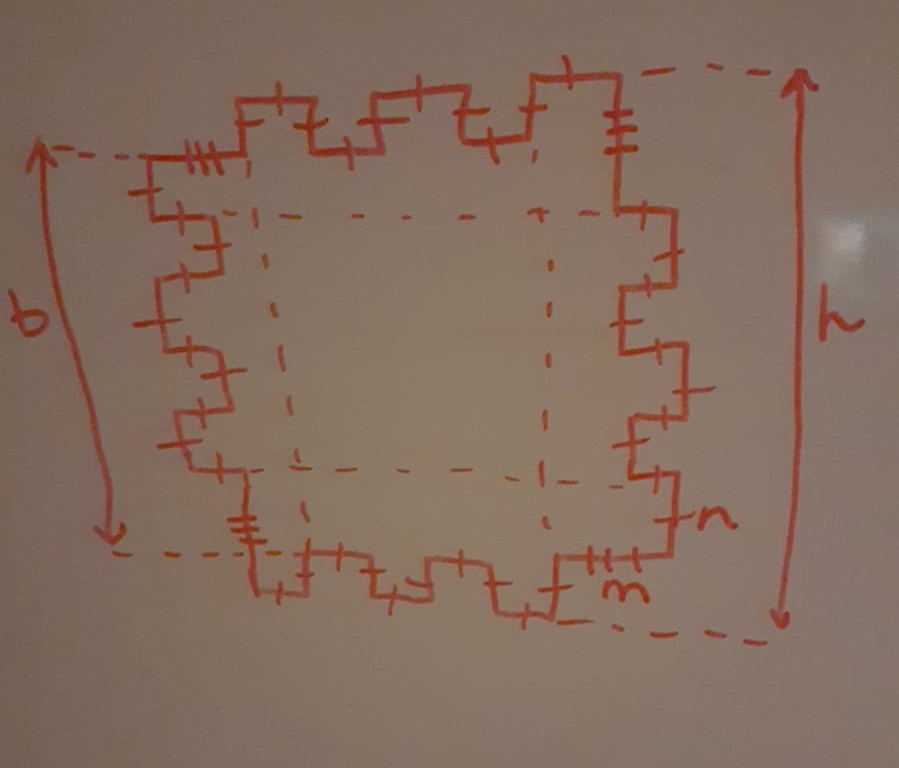 b
h
n
m